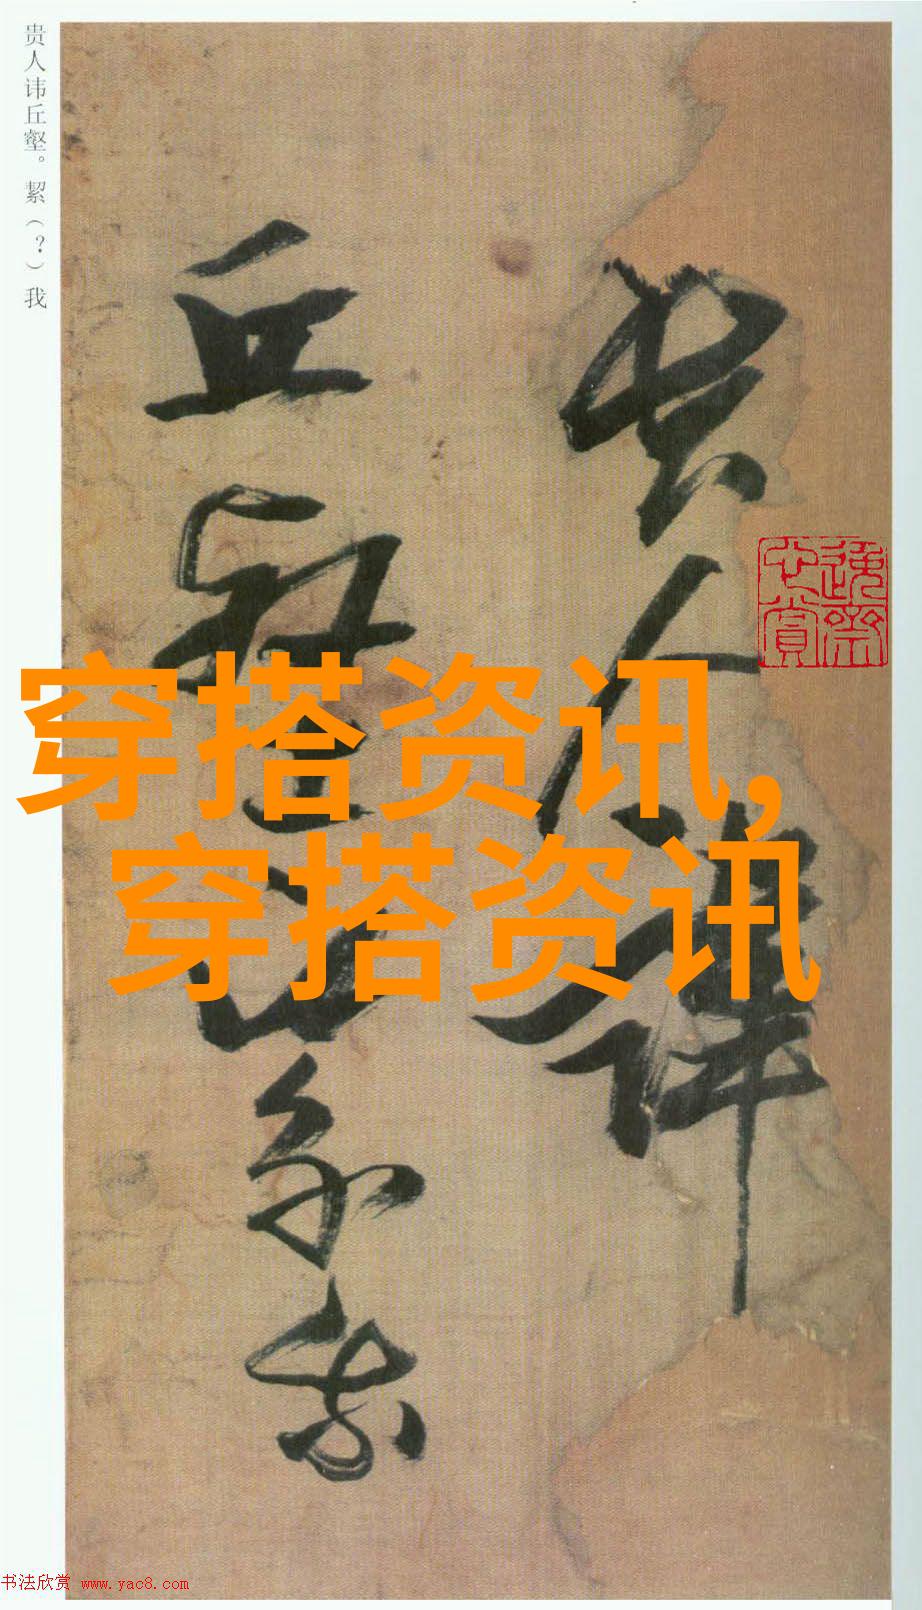 贵人讳丘壑。絜（？）我
貴人諱
丘壑絜我
穿搭资讯,
穿搭资讯
书法欣赏 www.yac8.com